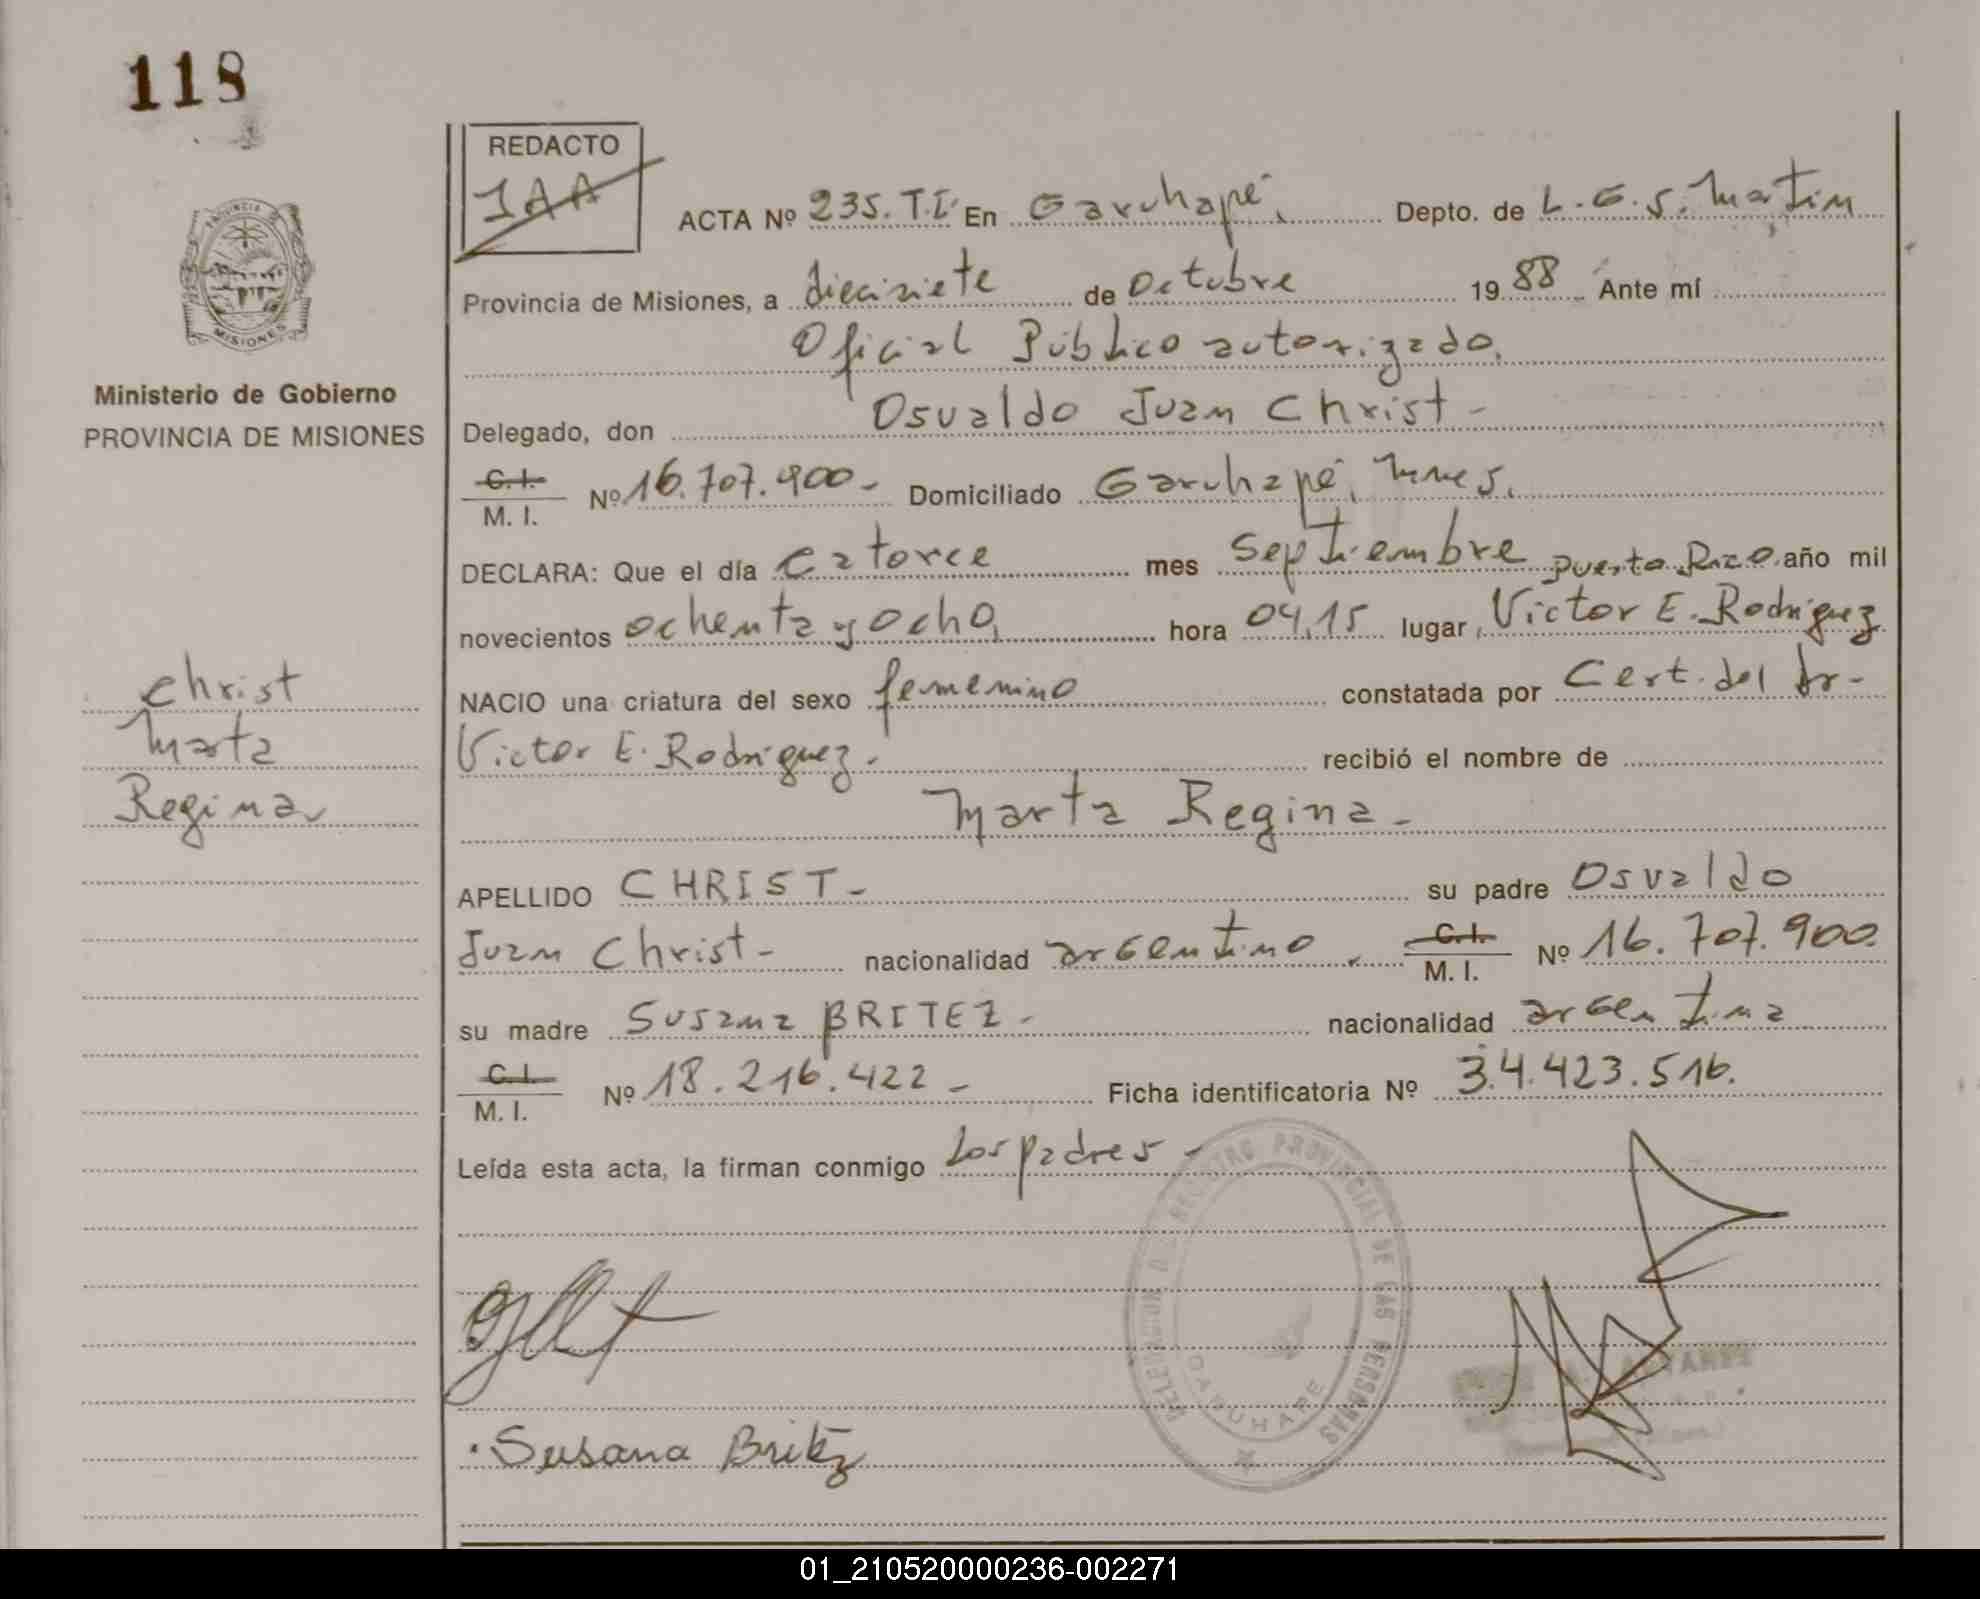 118
REDACTO
JAA
ACTA Nº 235. T.I. En Garuhapé, Depto. de L. G. S. Martin
Provincia de Misiones, a diecisiete de Octubre 1988 Ante mí
Oficial Público autorizado.
Ministerio de Gobierno
PROVINCIA DE MISIONES
Delegado, don Osvaldo Juan Christ -
C.I. M. I. Nº 16.707.900 - Domiciliado Garuhapé, Mnes.
DECLARA: Que el día catorce mes Septiembre Puerto Rico año mil
novecientos ochenta y ocho, hora 04,15 lugar, Victor E. Rodriguez
NACIO una criatura del sexo femenino constatada por Cert. del Dr -
Victor E. Rodriguez. recibió el nombre de
Marta Regina -
Christ
Marta
Regina
APELLIDO CHRIST - su padre Osvaldo
Juan Christ - nacionalidad argentino C.I. M. I. Nº 16.707.900.
su madre Susana BRITEZ - nacionalidad argentina
C.I. M. I. Nº 18.216.422 - Ficha identificatoria Nº 34.423.516.
Leída esta acta, la firman conmigo Los padres -
REGISTRO PROVINCIAL DE LAS PERSONAS
GARUHAPE
Susana Britez
01_210520000236-002271